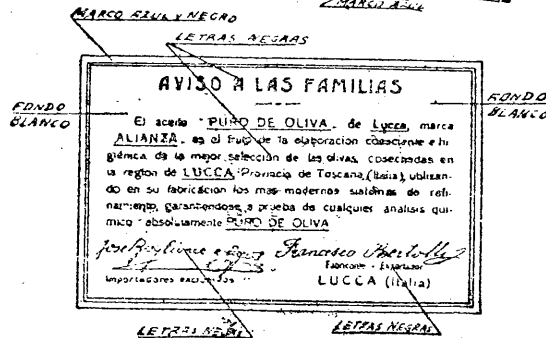 MARCO AZUL Y NEGRO
MARCO AZUL
LETRAS NEGRAS
AVISO A LAS FAMILIAS
FONDO BLANCO
FONDO BLANCO
El aceite "PURO DE OLIVA" de Lucca, marca
ALIANZA, es el fruto de la elaboración consciente e hi-
giénica de la mejor selección de las olivas, cosechadas en
la región de LUCCA, Provincia de Toscana, (Italia), utilizan-
do en su fabricación los mas modernos sistemas de refi-
namiento, garantendose a prueba de cualquier analisis quí-
mico absolutamente PURO DE OLIVA
Francisco Bertolli
Importadores exclusivos
Fabricante - Exportador
LUCCA (Italia)
LETRAS NEGRAS
LETRAS NEGRAS